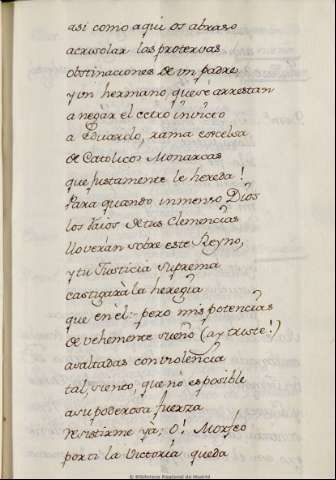 asi como aqui os abraso
acrisolar las protervas
obstinaciones de un padre
y un hermano, que se arrestan
a negar el cetro invicto
a Eduardo, rama excelsa
de Catolicos Monarcas
que justamente le hereda!
Para quando inmenso Dios
los raios de tus Clemencias
lloverán sobre este Reyno,
y tu Justicia suprema
castigará la heregia
que en él:- pero mis potencias
de vehemente sueño (ay triste!)
asaltadas con violencia
tal, siento, que no es posible
a su poderosa fuerza
resistirme ya; O! Morfeo
por ti la Victoria queda
© Biblioteca Nacional de Madrid